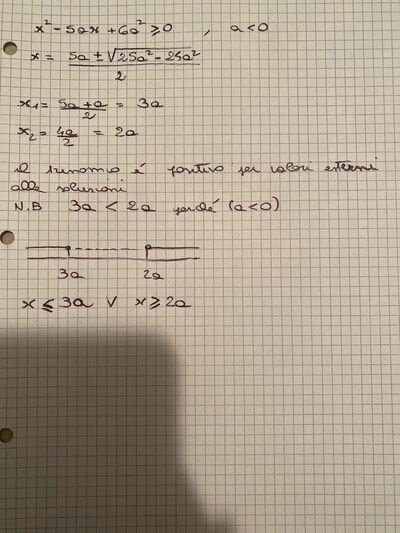 x² - 5ax + 6a² ⩾ 0 , a < 0
x = 5a ± √25a² - 24a² / 2
x₁ = 5a + a / 2 = 3a
x₂ = 4a / 2 = 2a
il trinomio é positivo per valori esterni
alle soluzioni
N.B 3a < 2a perché (a < 0)
3a 2a
x ⩽ 3a V x ⩾ 2a